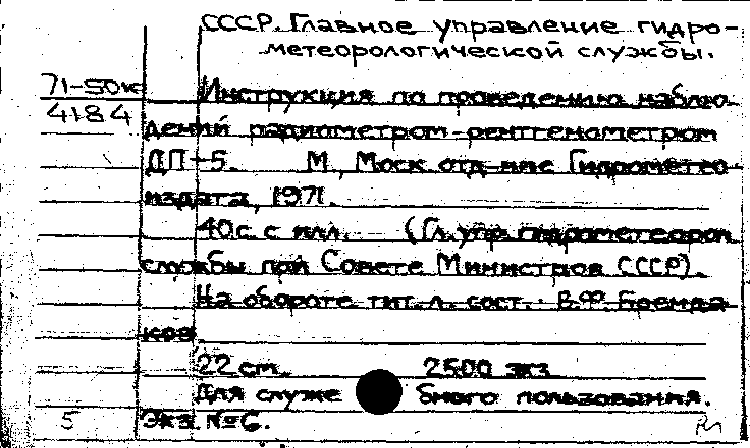 СССР. Главное управление гидро-
метеорологической службы.
71-50к
4184
Инструкция по проведению наблю-
дений радиометром-рентгенометром
ДП-5. М., Моск отд-ние Гидрометео-
издата, 1971.
40с. с илл. (Гл. упр. гидрометеорол
службы при Совете Министров СССР).
На обороте тит. л. сост.: В.Ф.
ков
22 см. 2500 экз
Для служебного пользования.
5 Экз. №6.